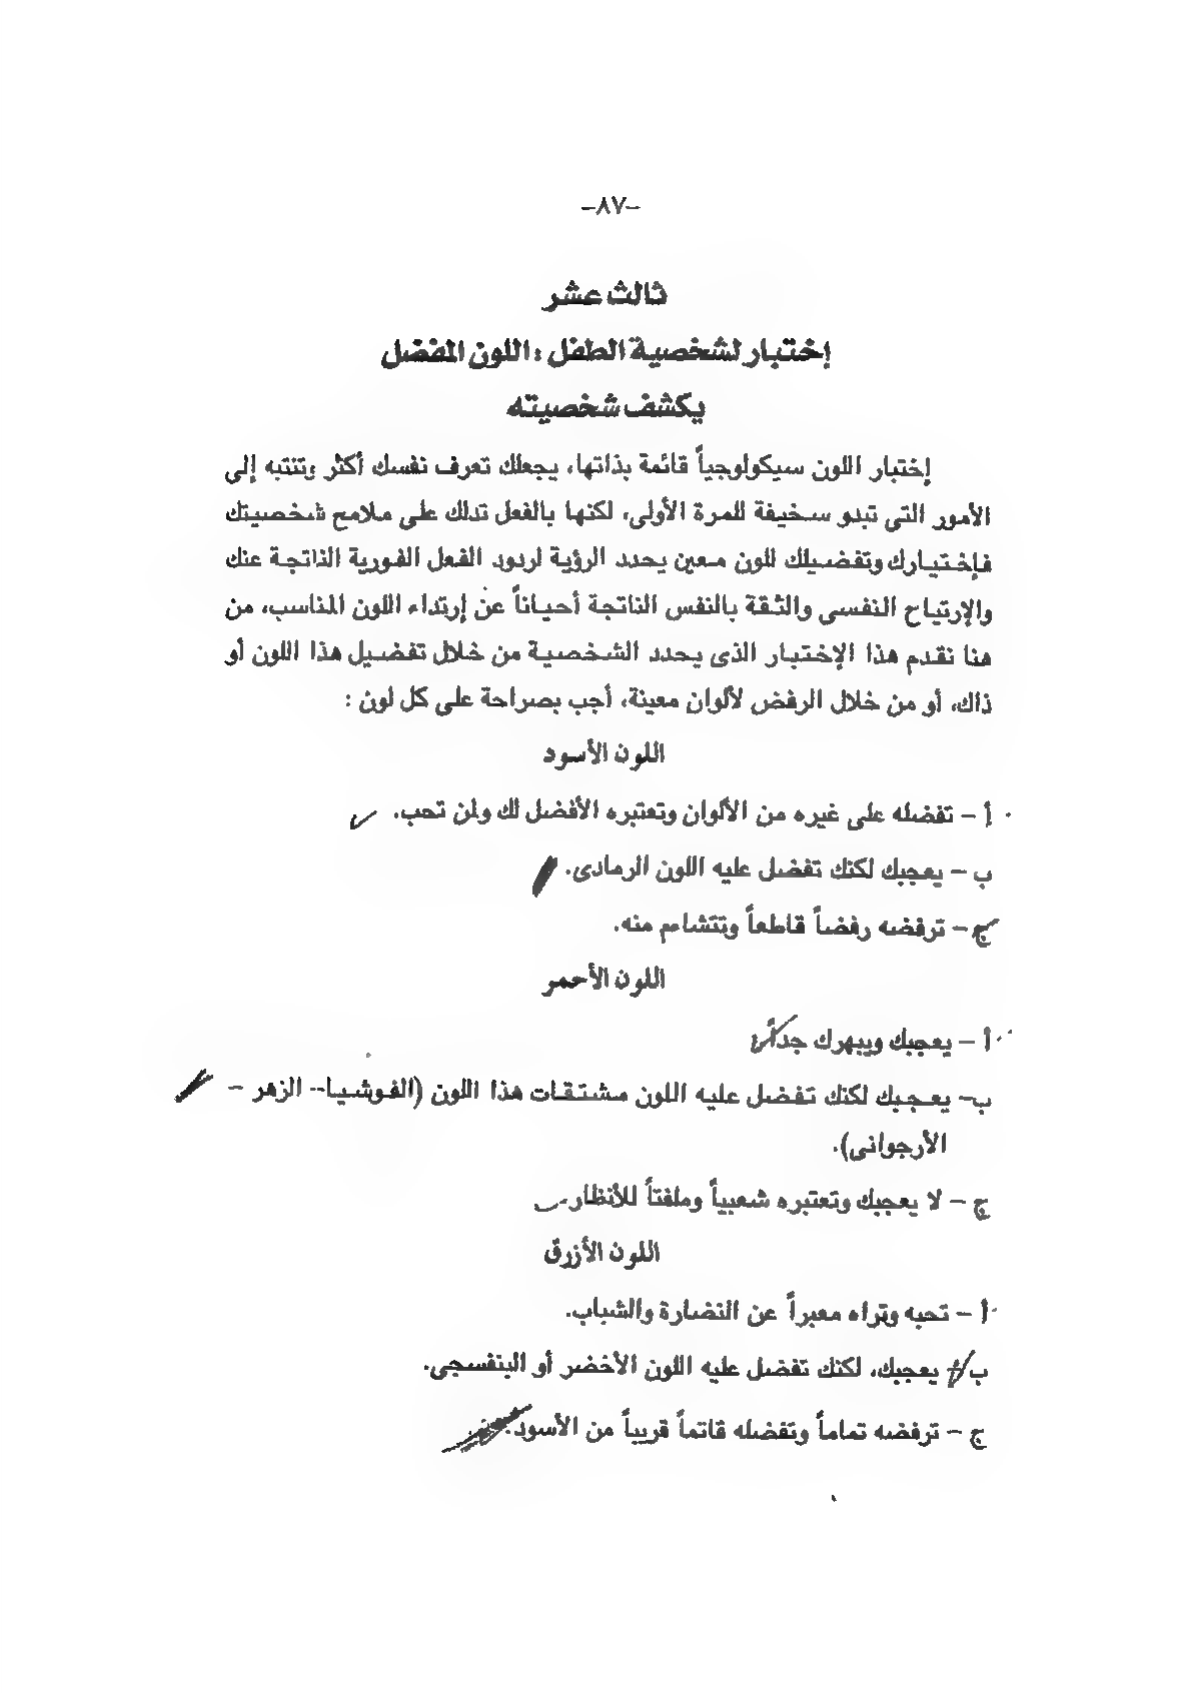 -٨٧-
ثالث عشر
إختبار لشخصية الطفل : اللون المفضل
يكشف شخصيته
إختبار اللون سيكولوجياً قائمة بذاتها، يجعلك تعرف نفسك أكثر وتنتبه إلى
الأمور التى تبدو سخيفة للمرة الأولى، لكنها بالفعل تدلك على ملامح شخصيتك
فإختيارك وتفضيلك للون معين يحدد الرؤية لردود الفعل الفورية الناتجة عنك
والإرتياح النفسى والثقة بالنفس الناتجة أحياناً عن إرتداء اللون المناسب، من
هنا نقدم هذا الإختبار الذى يحدد الشخصية من خلال تفضيل هذا اللون أو
ذاك، أو من خلال الرفض لألوان معينة، أجب بصراحة على كل لون :
اللون الأسود
أ – تفضله على غيره من الألوان وتعتبره الأفضل لك ولمن تحب.
ب – يعجبك لكنك تفضل عليه اللون الرمادى.
ج – ترفضه رفضاً قاطعاً وتتشاءم منه.
اللون الأحمر
أ – يعجبك ويبهرك جداً.
ب– يعجبك لكنك تفضل عليه اللون مشتقات هذا اللون (الفوشيا-- الزهر –
الأرجوانى).
ج – لا يعجبك وتعتبره شعبياً وملفتاً للأنظار.
اللون الأزرق
أ – تحبه وتراه معبراً عن النضارة والشباب.
ب – يعجبك، لكنك تفضل عليه اللون الأخضر أو البنفسجى.
ج – ترفضه تماماً وتفضله قاتماً قريباً من الأسود.